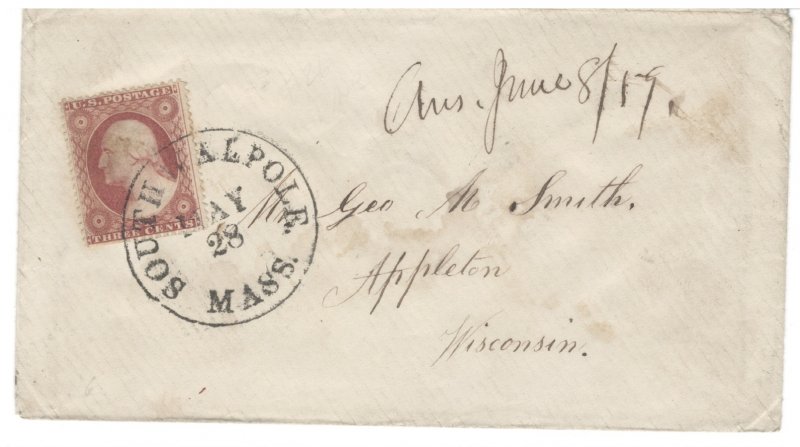 Ans. June 8/59.
U.S. POSTAGE
THREE CENTS
SOUTH WALPOLE.
MAY
28
MASS.
Mr Geo M Smith,
Appleton
Wisconsin.